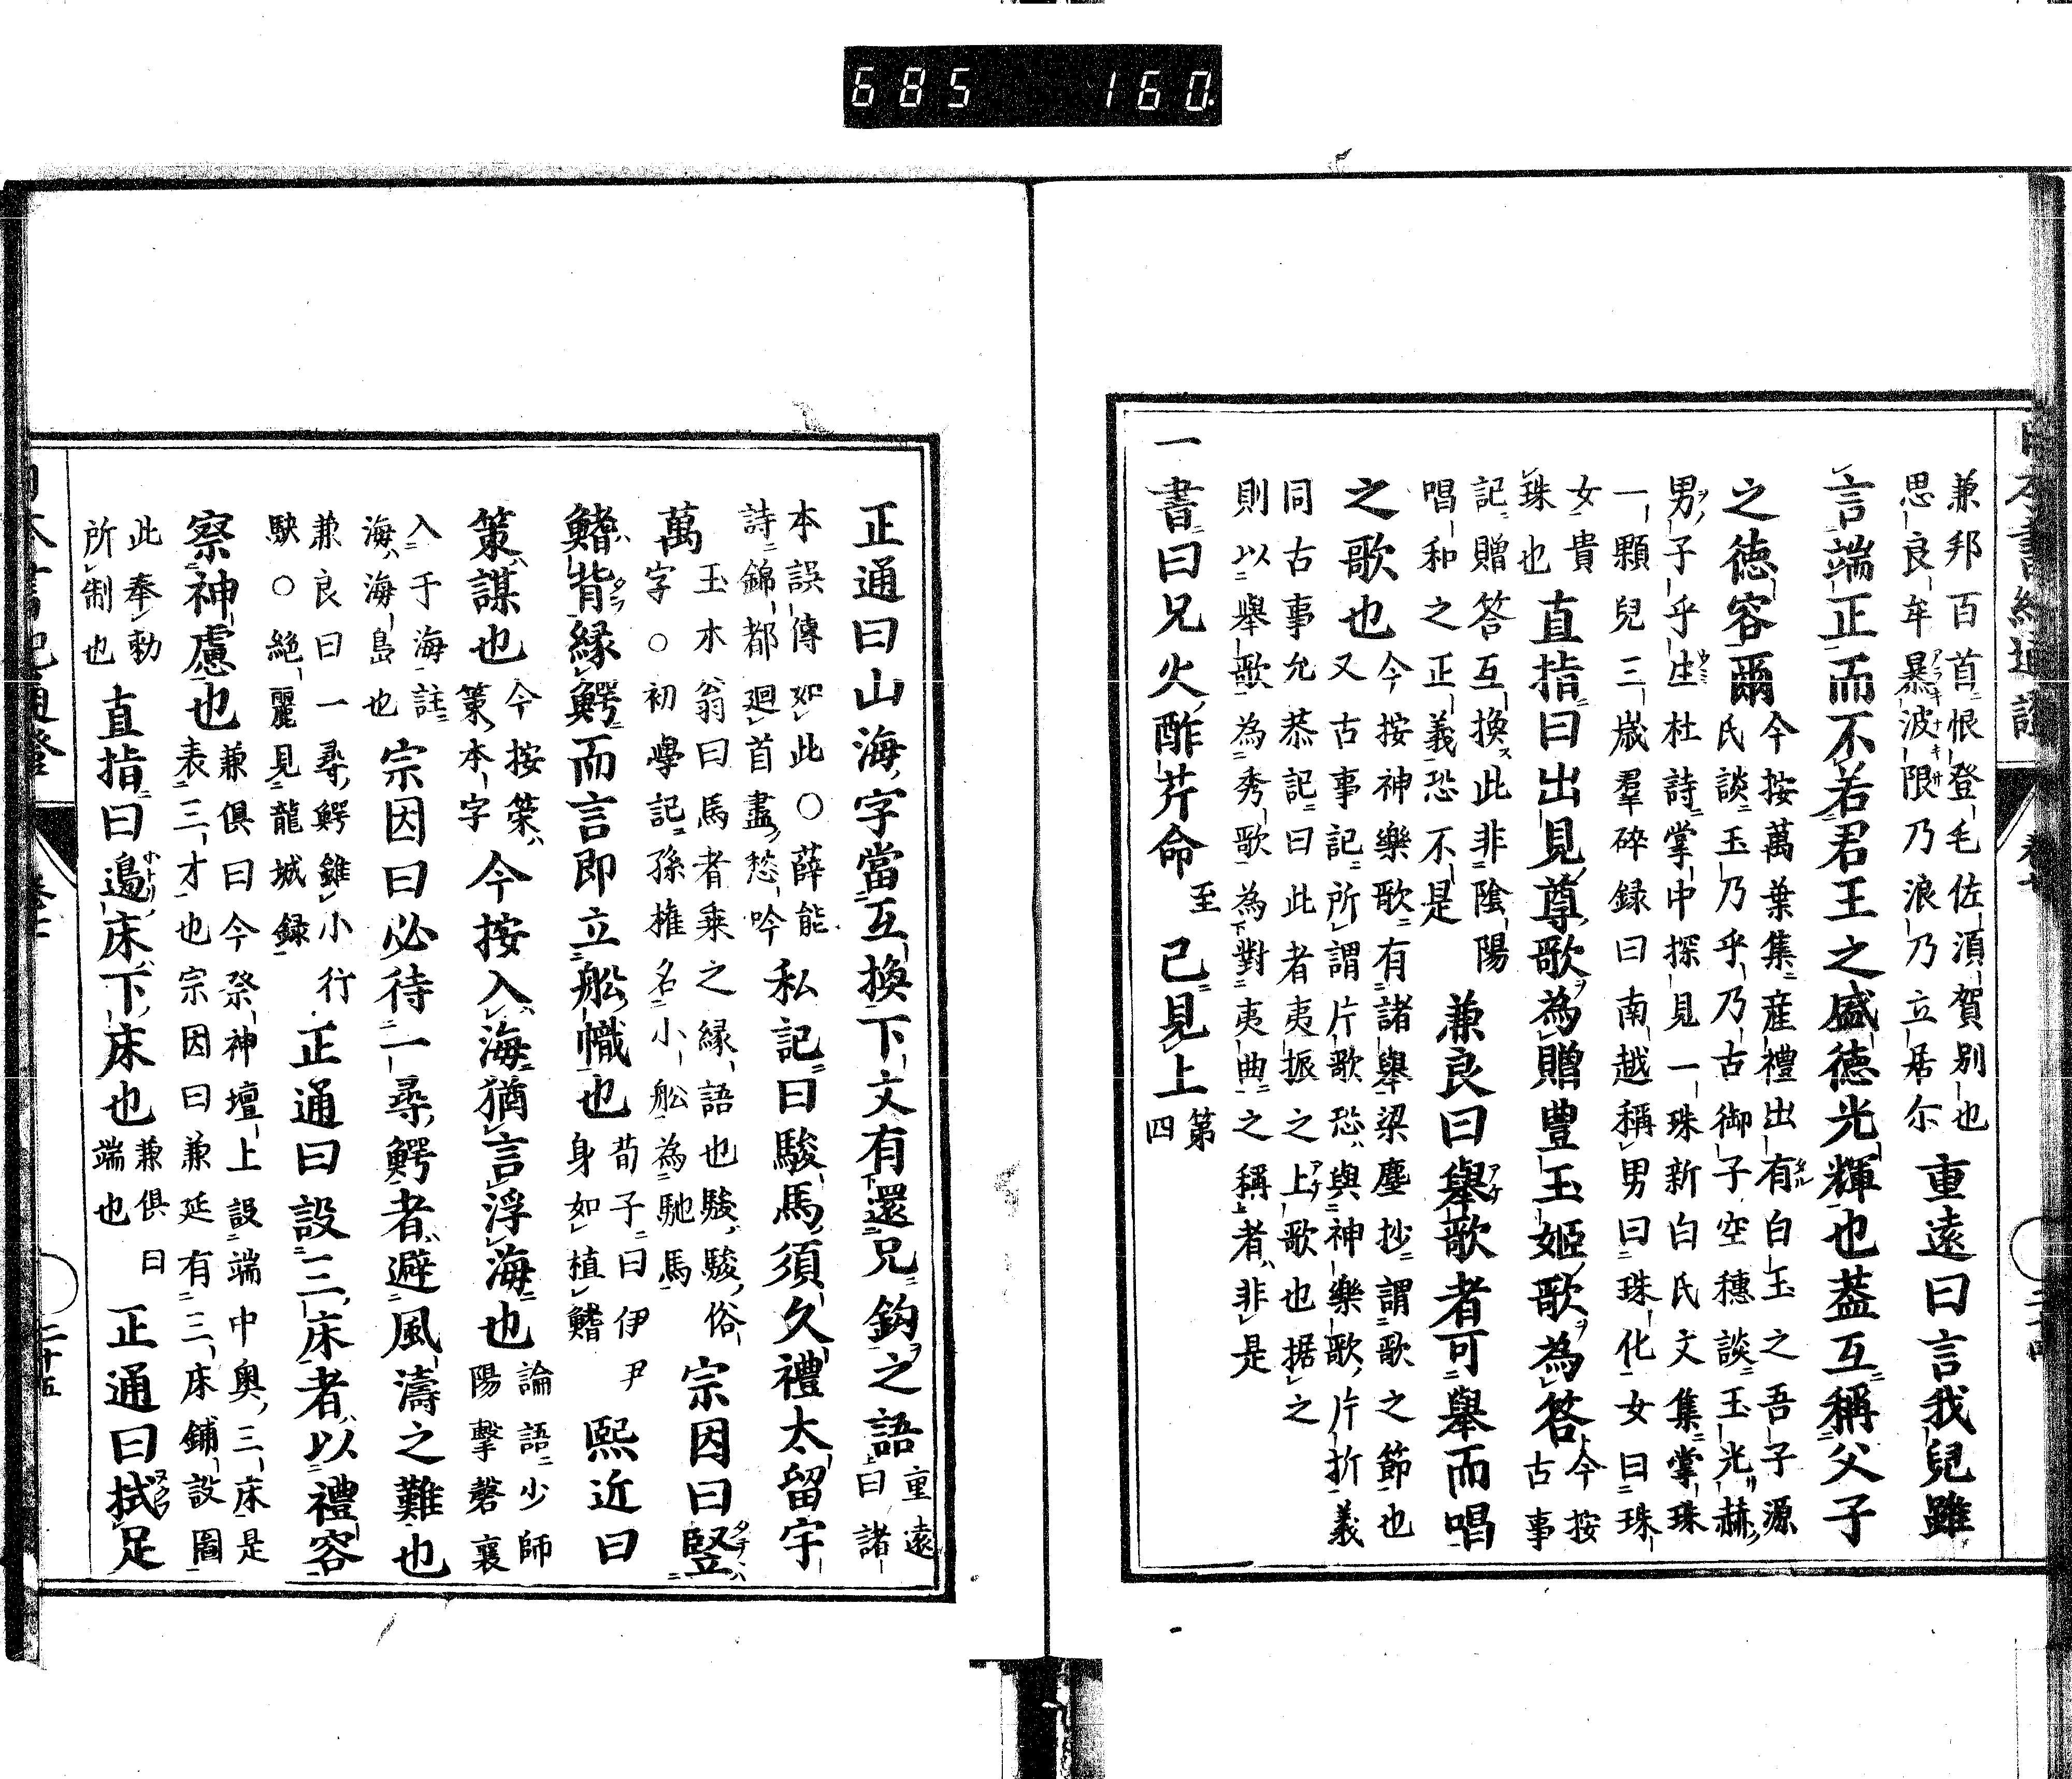 685 160
兼邦百首恨登毛佐湏賀别也
思良牟暴波限乃浪乃立居尓
重遠曰言我兒雖
言端正而不若君王之盛德光輝也蓋互稱父子
之德容爾
今按萬葉集産禮出有白玉之吾子源
氏談玉乃乎乃古御子空穗談玉光赫
男子乎生杜詩掌中探見一珠新白氏文集掌珠
一顆兒三歳羣碎録曰南越稱男曰珠化女曰珠
女貴
珠也
直指曰出見尊歌為贈豊玉姬歌為答
今按
古事
記贈答互換此非陰陽
唱和之正義恐不是
兼良曰舉歌者可舉而唱
之歌也
今按神樂歌有諸舉梁塵抄謂歌之節也
又古事記所謂片歌恐與神樂歌片折義
同古事允恭記曰此者夷振之上歌也据之
則以舉歌為秀歌為對夷曲之稱者非是
一書曰兄火酢芹命
至
已見上
第
四
正通曰山海字當互換下文有還兄鈎之語
重遠
曰諸
本誤傳如此○薛能
詩錦都廻首盡愁吟
私記曰駿馬須久禮太留宇
萬
玉木翁曰馬者乗之縁語也駿駿俗
字○初學記孫権名小舩為馳馬
宗因曰竪
鰭背縁鰐而言即立舩幟也
荀子曰伊尹
身如植鰭
熙近曰
策謀也
今按策
策本字
今按入海猶言浮海也
論語少師
陽擊磬襄
入于海註
海海島也
宗因曰必待一尋鰐者避風濤之難也
兼良曰一尋鰐雖小行
駃○絶麗見龍城録
正通曰設三床者以禮容
察神慮也
兼倶曰今祭神壇上設端中奥三床是
表三才也宗因曰兼延有三床鋪設圖
此奉勅
所制也
直指曰邉床下床也
兼倶曰
端也
正通曰拭足